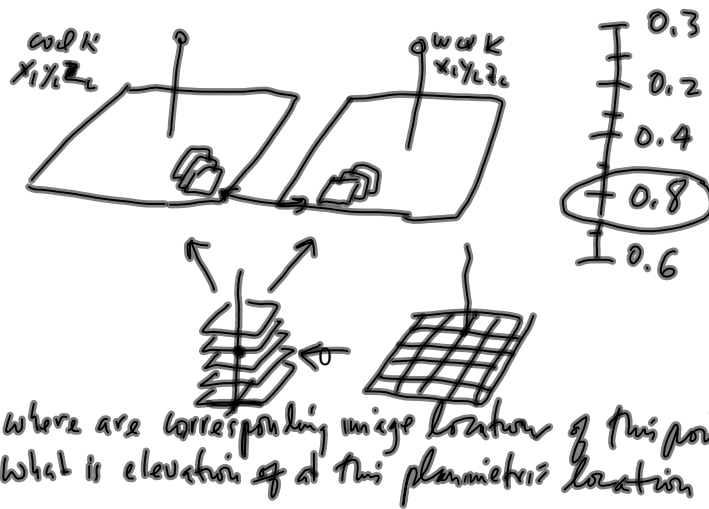 work
x₁y₂z₂
0.3
0.2
0.4
0.8
0.6
0
where are corresponding image locations of this
what is elevation of at this planimetric location